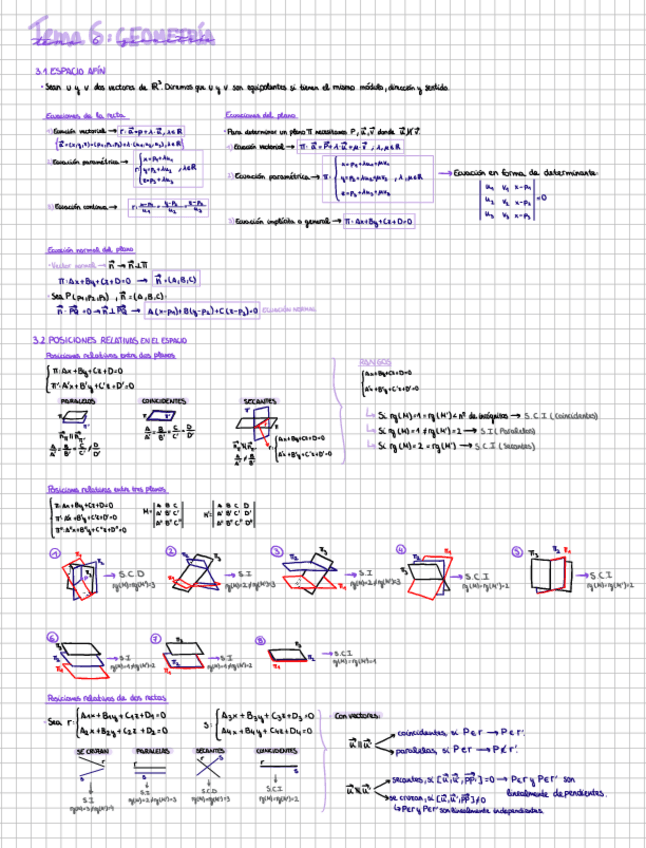 Tema 6: GEOMETRÍA
3.1 ESPACIO AFÍN
· Sean u y v dos vectores de ℝ³. Diremos que u y v son equipolentes si tienen el mismo módulo, dirección y sentido.
Ecuaciones de la recta
1) Ecuación vectorial → r: a⃗ = p + λ · u⃗, λ∈ℝ
2) Ecuación paramétrica →
r { x = p₁ + λu₁
y = p₂ + λu₂, λ∈ℝ
z = p₃ + λu₃
3) Ecuación continua → r: x-p₁/u₁ = y-p₂/u₂ = z-p₃/u₃
Ecuaciones del plano
· Para determinar un plano π necesitamos P, u⃗, v⃗ donde
1) Ecuación vectorial →
2) Ecuación paramétrica → π:
x = p₁ + λu₁ + μv₁
y = p₂ + λu₂ + μv₂, λ, μ∈ℝ
z = p₃ + λu₃ + μv₃
→ Ecuación en forma de determinante:
u₁ v₁ x-p₁
u₂ v₂ x-p₂ =0
u₃ v₃ x-p₃
3) Ecuación implícita o general → π: Ax+By+Cz+D=0
Ecuación normal del plano
· Vector normal → n⃗ → n⃗⊥π
π: Ax+By+Cz+D=0 → n⃗=(A,B,C)
· Sea P(p₁,p₂,p₃), n⃗=(A,B,C):
n⃗ · PQ⃗ =0 → n⃗⊥PQ⃗ → A(x-p₁)+B(y-p₂)+C(z-p₃)=0 ECUACIÓN NORMAL
3.2 POSICIONES RELATIVAS EN EL ESPACIO
Posiciones relativas entre dos planos
π: Ax+By+Cz+D=0
π': A'x+B'y+C'z+D'=0
PARALELOS COINCIDENTES SECANTES
A/A' = B/B' = C/C' ≠ D/D'
A/A' = B/B' = C/C' = D/D'
A/A' ≠ B/B'
r: { Ax+By+Cz+D=0
A'x+B'y+C'z+D'=0
RANGOS
Ax+By+Cz+D=0
A'x+B'y+C'z+D'=0
Si rg(M)=1=rg(M')< nº de incógnitas → S.C.I (Coincidentes)
Si rg(M)=1≠rg(M')=2 → S.I (Paralelos)
Si rg(M)=2=rg(M') → S.C.I (Secantes)
Posiciones relativas entre tres planos
π: Ax+By+Cz+D=0
π': A'x+B'y+C'z+D'=0
π'': A''x+B''y+C''z+D''=0
M= A B C
A' B' C'
A'' B'' C''
M'= A B C D
A' B' C' D'
A'' B'' C'' D''
1 → S.C.D
2 → S.I
3 → S.I
4 → S.C.I
5 → S.C.I
6 → S.I
7 → S.I
8 → S.C.I
Posiciones relativas de dos rectas
· Sea r: { A₁x+B₁y+C₁z+D₁=0
A₂x+B₂y+C₂z+D₂=0
s: { A₃x+B₃y+C₃z+D₃=0
A₄x+B₄y+C₄z+D₄=0
SE CRUZAN PARALELAS SECANTES COINCIDENTES
S.I S.I S.C.D S.C.I
· Con vectores:
coincidentes, si P∈r → P∈r'.
paralelas, si P∈r → P∉r'.
secantes, si [u⃗,u⃗',PP'⃗]=0 → P∈r y P∈r' son
linealmente dependientes.
se cruzan, si [u⃗,u⃗',PP'⃗]≠0
↳ P∈r y P∈r' son linealmente independientes.